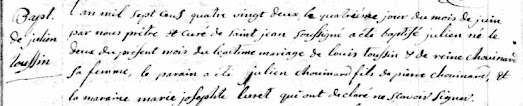 Bapt.
de julien
toussin
L'an mil sept cens quatre vingt deux le quatrième jour du mois de juin
par nous prêtre et curé de saint jean soussigné a été baptisé julien né le
deux du présent mois du légitime mariage de louis toussin & de reine chouinard
sa femme, le parain a été julien chouinard fils de pierre chouinard, et
la maraine marie josephte luret qui ont declaré ne scavoir signer.